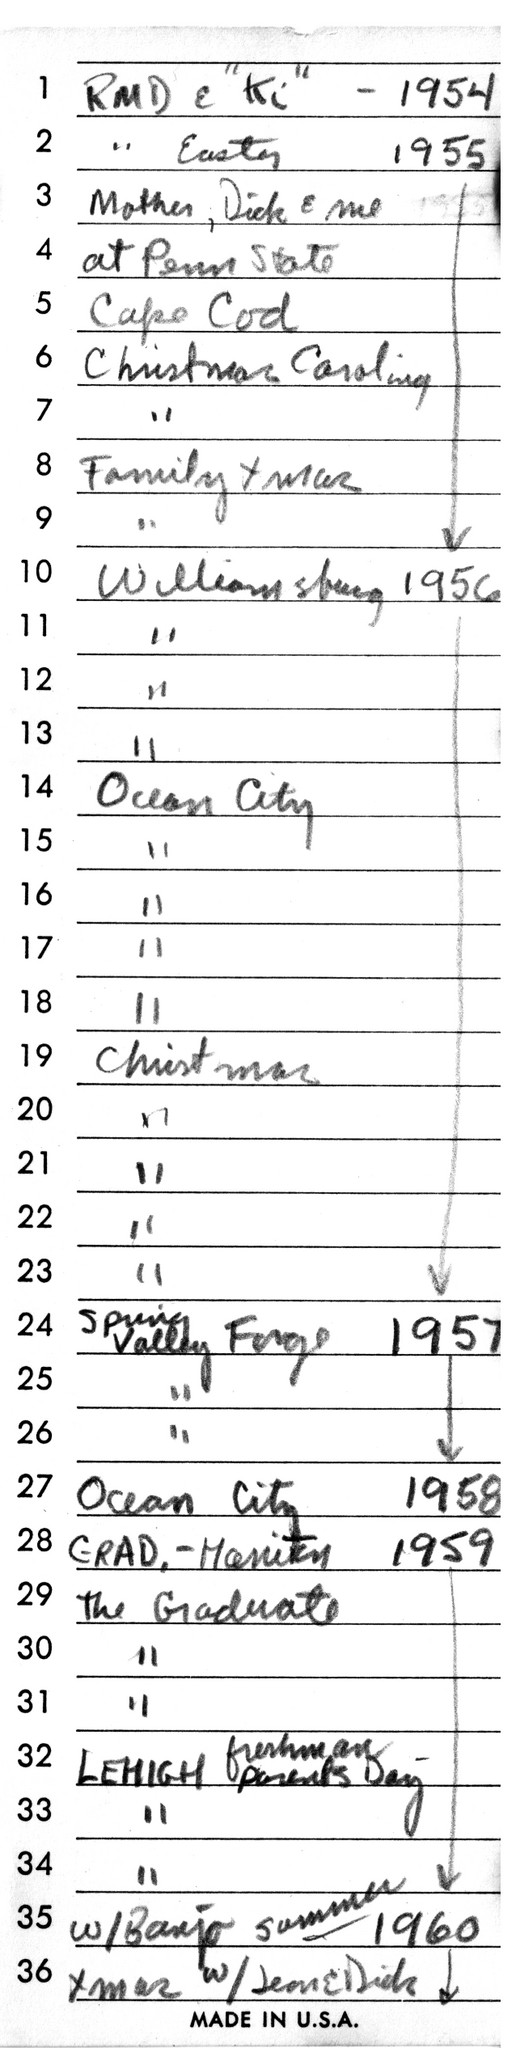 1 RMD & "Ki" - 1954
2 " Easter 1955
3 Mother, Dick & me
4 at Penn State
5 Cape Cod
6 Christmas Caroling
7 "
8 Family Xmas
9 "
10 Williamsburg 1956
11 "
12 "
13 "
14 Ocean City
15 "
16 "
17 "
18 "
19 Christmas
20 "
21 "
22 "
23 "
24 Spring Valley Forge 1957
25 "
26 "
27 Ocean City 1958
28 GRAD. - 1959
29 The Graduate
30 "
31 "
32 LEHIGH freshman parents Day
33 "
34 "
35 w/Banjo summer 1960
36 Xmas w/Jean & Dick
MADE IN U.S.A.